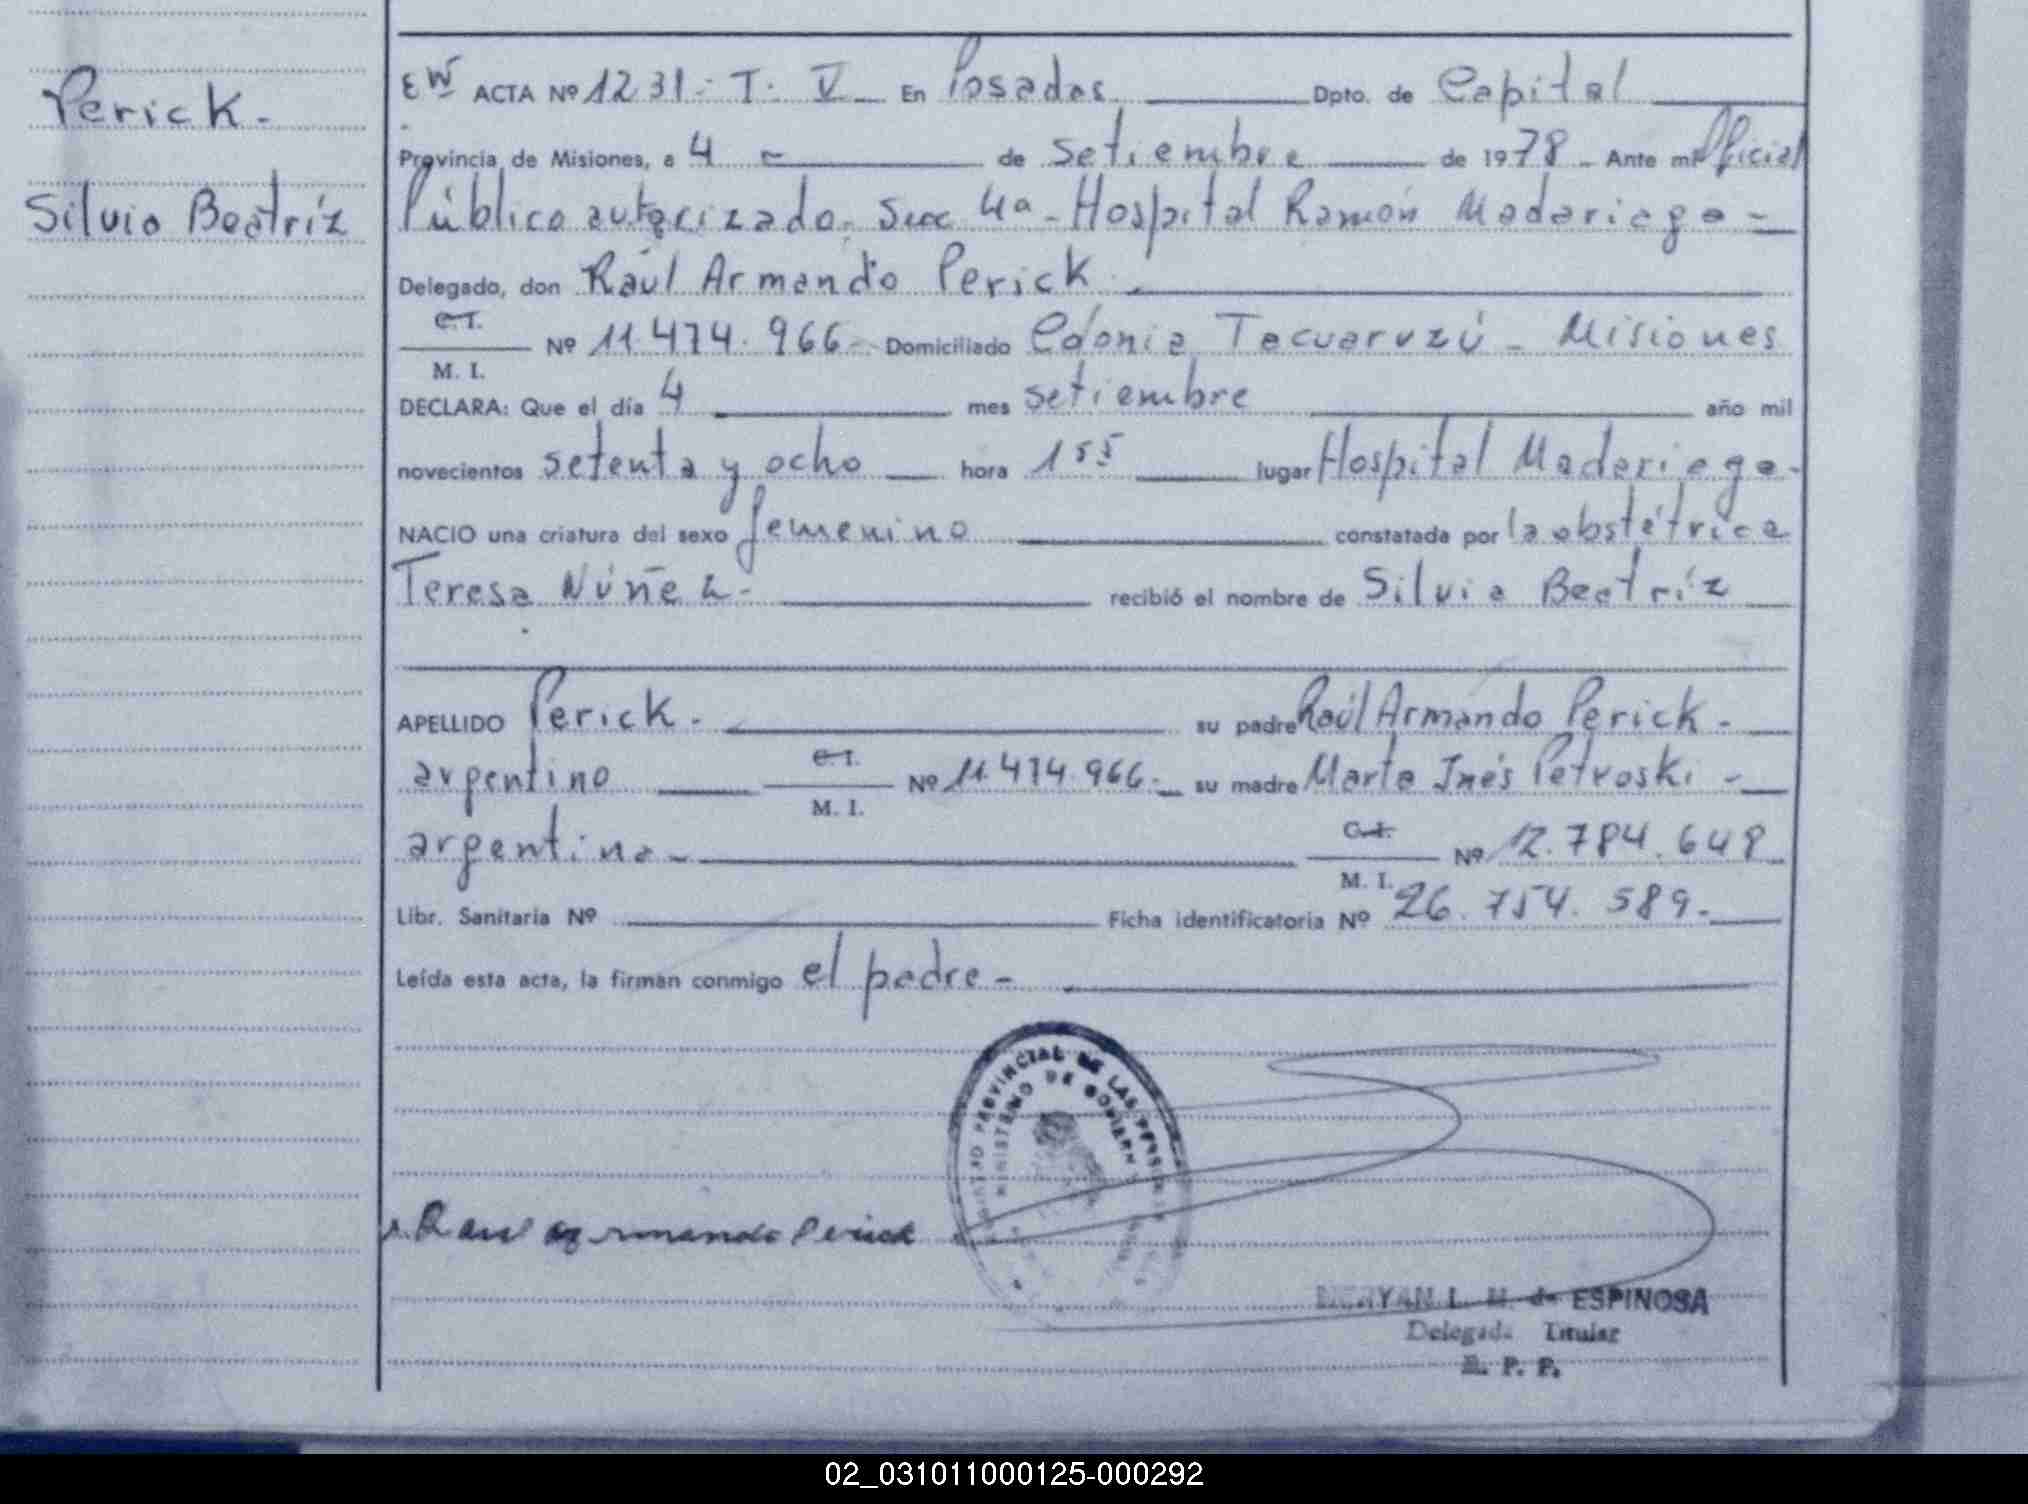 Perick.-
Silvia Beatríz
ACTA Nº 1231.- T. V En Posadas Dpto. de Capital
Provincia de Misiones, a 4 de setiembre de 1978 - Ante mi Oficial
Público autorizado. Succ 4a - Hospital Ramón Madariaga -
Delegado, don Raúl Armando Perick.
C. I.
M. I.
Nº 11.474.966- Domiciliado Colonia Tacuaruzú - Misiones
DECLARA: Que el día 4 mes setiembre año mil
novecientos setenta y ocho hora 1 55 lugar Hospital Madariaga-
NACIO una criatura del sexo femenino constatada por la obstétrica
Teresa Núñez - recibió el nombre de Silvia Beatríz
APELLIDO Perick.- su padre Raúl Armando Perick.-
argentino C. I. M. I. Nº 11.474.966.- su madre Marta Inés Petroski -
argentina - C. I. M. I. Nº 12.784.648
Libr. Sanitaria Nº Ficha identificatoria Nº 26.754.589.-
Leída esta acta, la firman conmigo el padre -
REGISTRO PROVINCIAL DE LAS PERSONAS
MINISTERIO DE GOBIERNO
Raul armando Perick
L. M. de ESPINOSA
Delegada Titular
R. P. P.
02_031011000125-000292